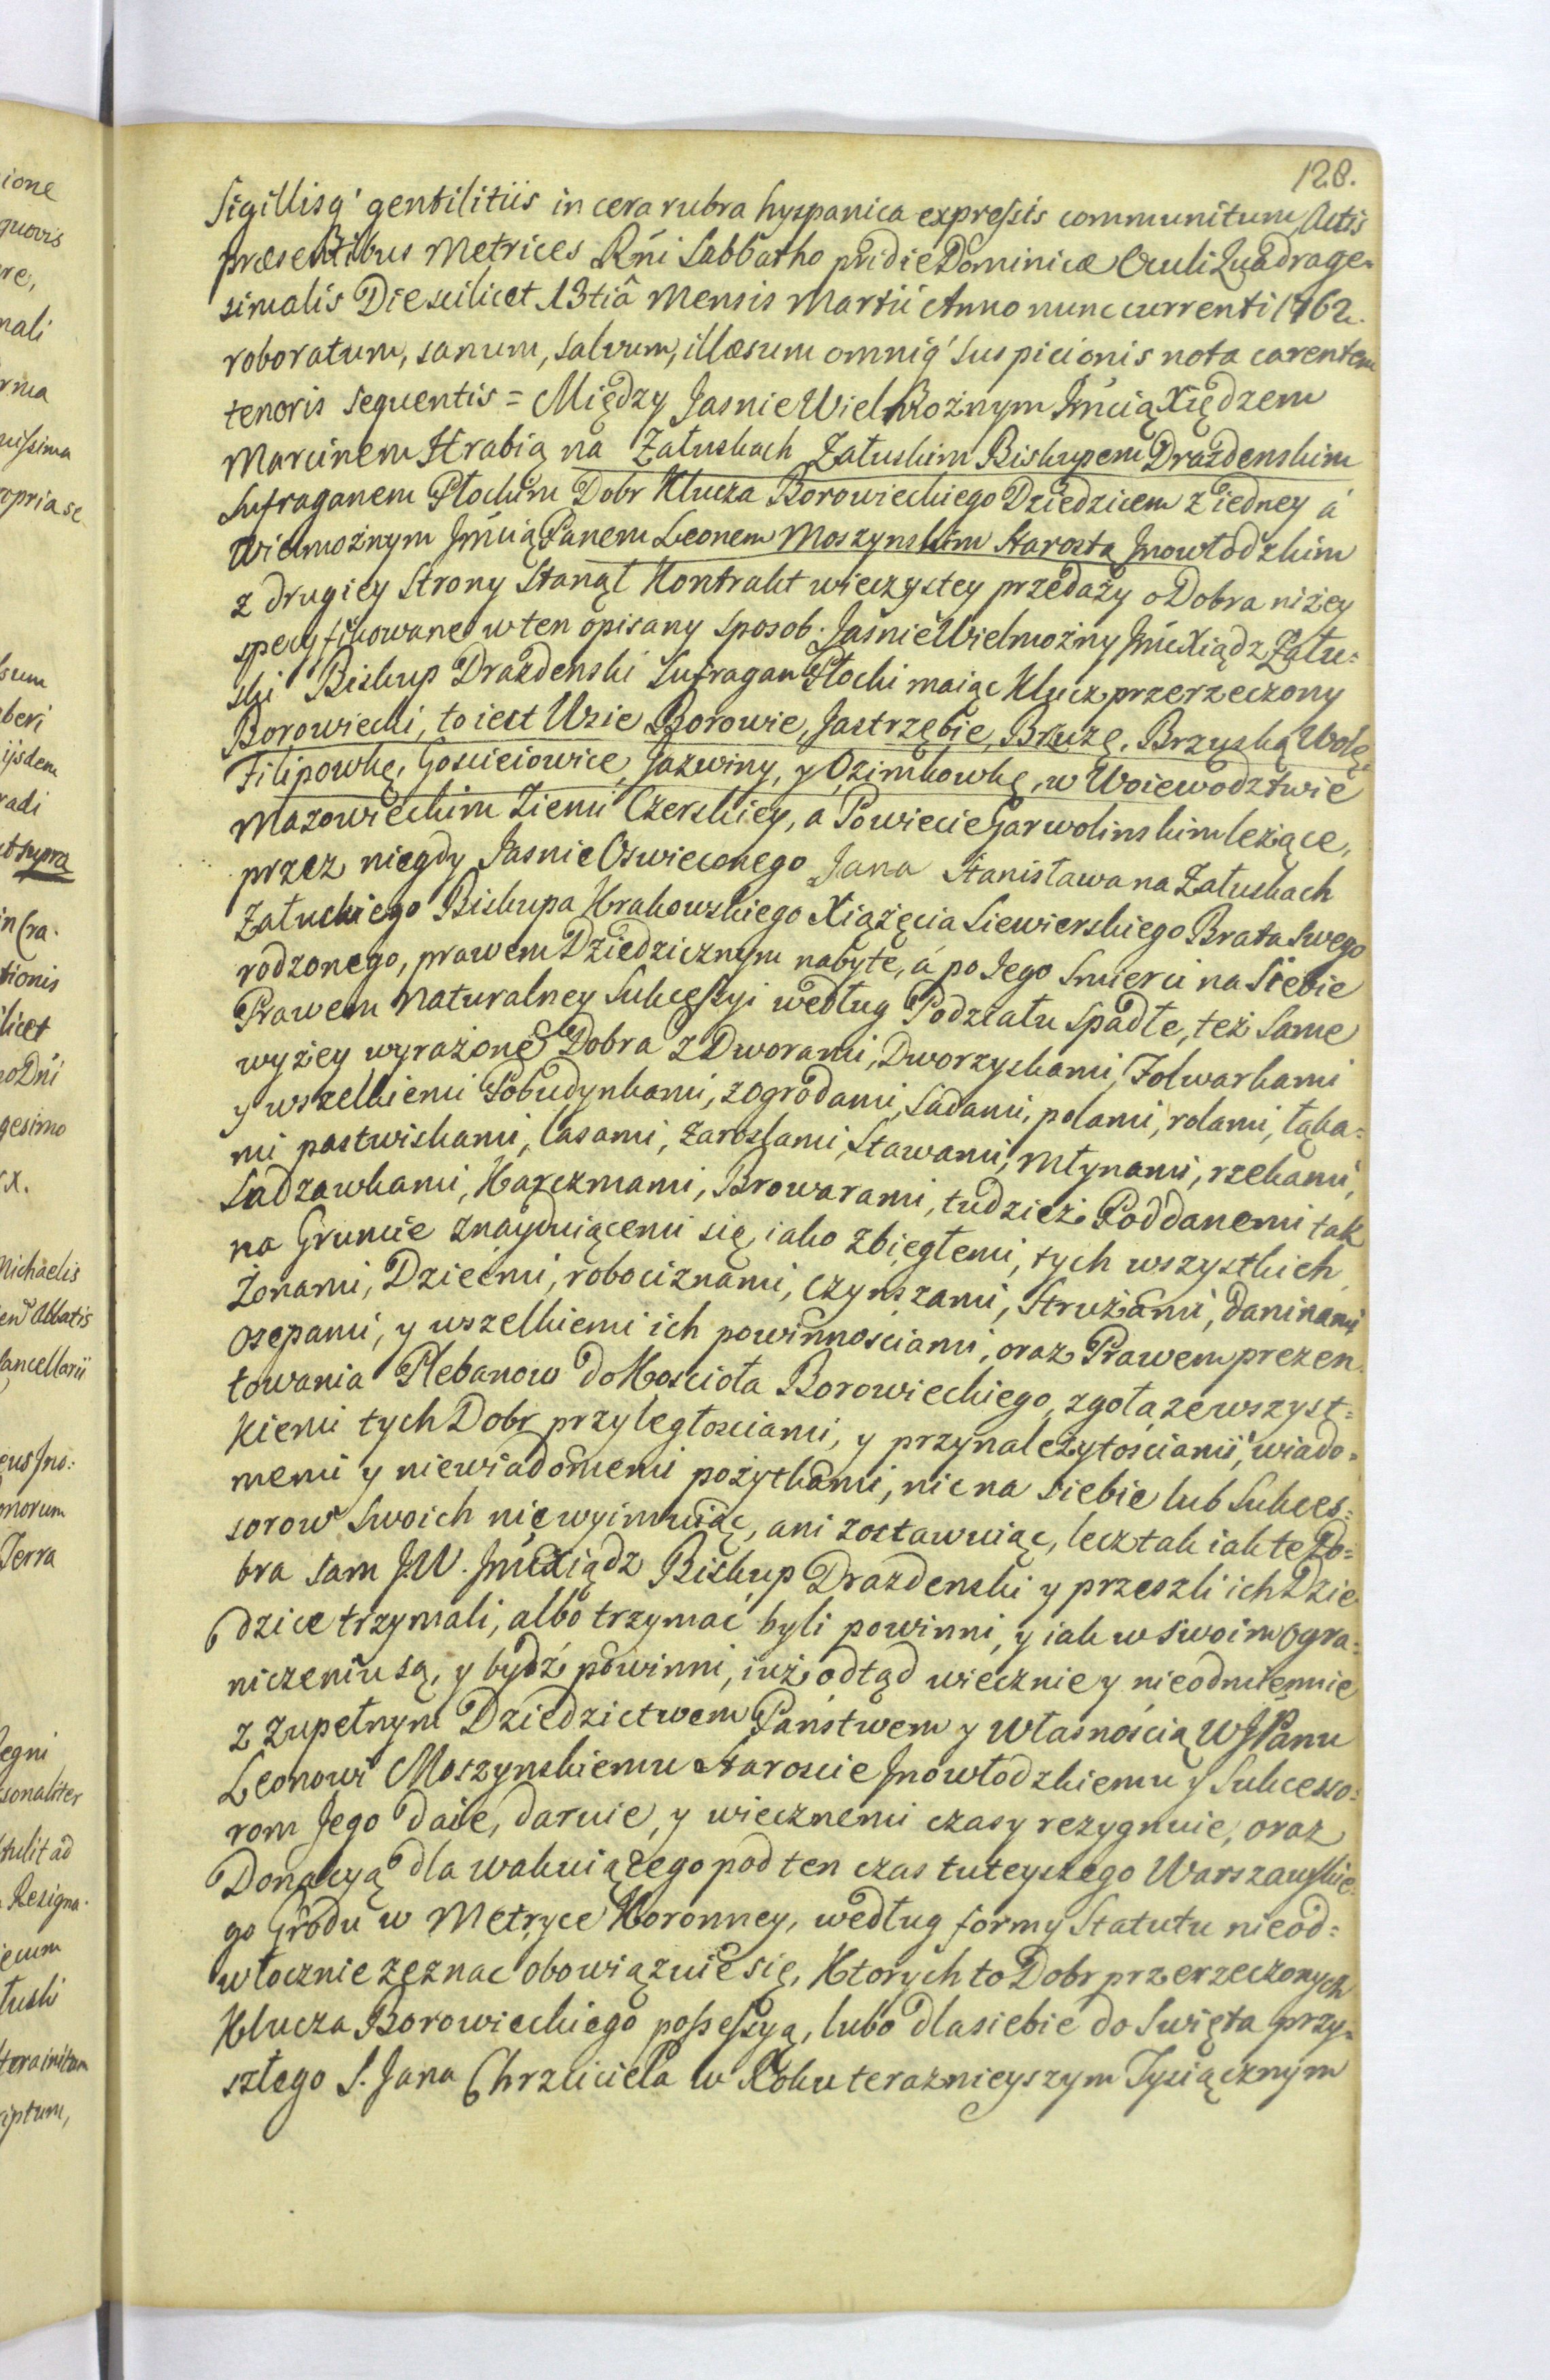 128.
Sigillisq' gentilitiis in cera rubra hyspanica expressis communitum Actis
præsentibus Metrices Rńi Sabbatho pridie Dominicæ Oculi Quadrage-
simalis Die scilicet 13tiâ Mensis Martii Anno nunc currenti 1762.
roboratum, sanum, salvum, illæsum omniq' suspicionis nota carentem
tenoris sequentis = Między Jasnie Wielmożnym Jmcią Xiędzem
Marcinem Hrabią na Załuskach Załuskim Biskupem Drazdenskim
Sufraganem Płockim Dobr Klucza Borowieckiego Dziedzicem z iedney á
Wielmożnym Jmcią Panem Leonem Moszynskim Starostą Jnowłodzkim
z drugiey Strony Stanął Kontrakt wieczystey przedaży o Dobra niżey
specyfikowane w ten opisany sposob. Jaśnie Wielmożny JmćXiądz Zału=
ski Biskup Drazdenski Sufragan Płocki maiąc Klucz przerzeczony
Borowiecki, to iest Wsie Borowie, Jastrzębie, Bruzę, Brzuską Wolę
Filipowkę, Gosciciowice, Jazwiny, y Ozimkowkę, w Woiewodztwie
Mazowieckim Ziemi Czerskiey, a Powiecie Garwolinskim leżące,
przez niegdy Jasnie Oswieconego Jana Stanisława na Załuskach
Załuskiego Biskupa Krakowskiego Xiążęcia Siewierskiego Brata swego
rodzonego, prawem Dziedzicznym nabyte, á po Jego Smierci na Siebie
Prawem Naturalney Sukcessyi według Podziału spadłe, też same
wyżey wyrażone Dobra z Dworami, Dworzyskami, Folwarkami
y wszelkiemi Pobudynkami, zogrodami, Sadami, polami, rolami, łąka=
mi pastwiskami, lasami, zaroslami, Stawami, Młynami, rzekami,
Sadzawkami, Karczmami, Browarami, tudzież Poddanemi tak
na Gruncie znayduiącemi się, iako zbiegłemi, tych wszystkich
Żonami, Dziećmi, robociznami, czynszami, Strużami, daninami
osepami, y wszelkiemi ich powinnosciami, oraz Prawem prezen
towania Plebanow do Kosciola Borowieckiego, zgoła zewszyst=
kiemi tych Dobr przyległosciami, y przynależytościami, wiado=
memi y niewiadomemi pożytkami, nic na siebie lub Sukces=
sorow swoich nie wyimuiąc, ani zostawuiąc, lecz tak iak te Do=
bra sam J.W. JmćXiądz Biskup Drazdenski y przeszli ich Dzie
dzice trzymali, albo trzymać byli powinni, y iak w swoim ogra=
niczeniu są, y bydź powinni, iuż odtąd wiecznie y nieodmiennie
z zupełnym Dziedzictwem Państwem y Własnością WJPanu
Leonowi Moszynskiemu Staroscie Jnowłodzkiemu y Sukcesso=
rom Jego daie, daruie, y wiecznemi czasy rezygnuie, oraz
Donacyą dla wakuiącego pod ten czas tuteyszego Warszawskie=
go Grodu w Metryce Koronney, według formy Statutu nieod=
włocznie zeznac obowiązuie się, Ktorych to Dobr przerzeczonych
Klucza Borowieckiego possessyą, lubo dla siebie do Swięta przy-
szłego S. Jana Chrzciciela w Roku teraznieyszym Tysiącznym